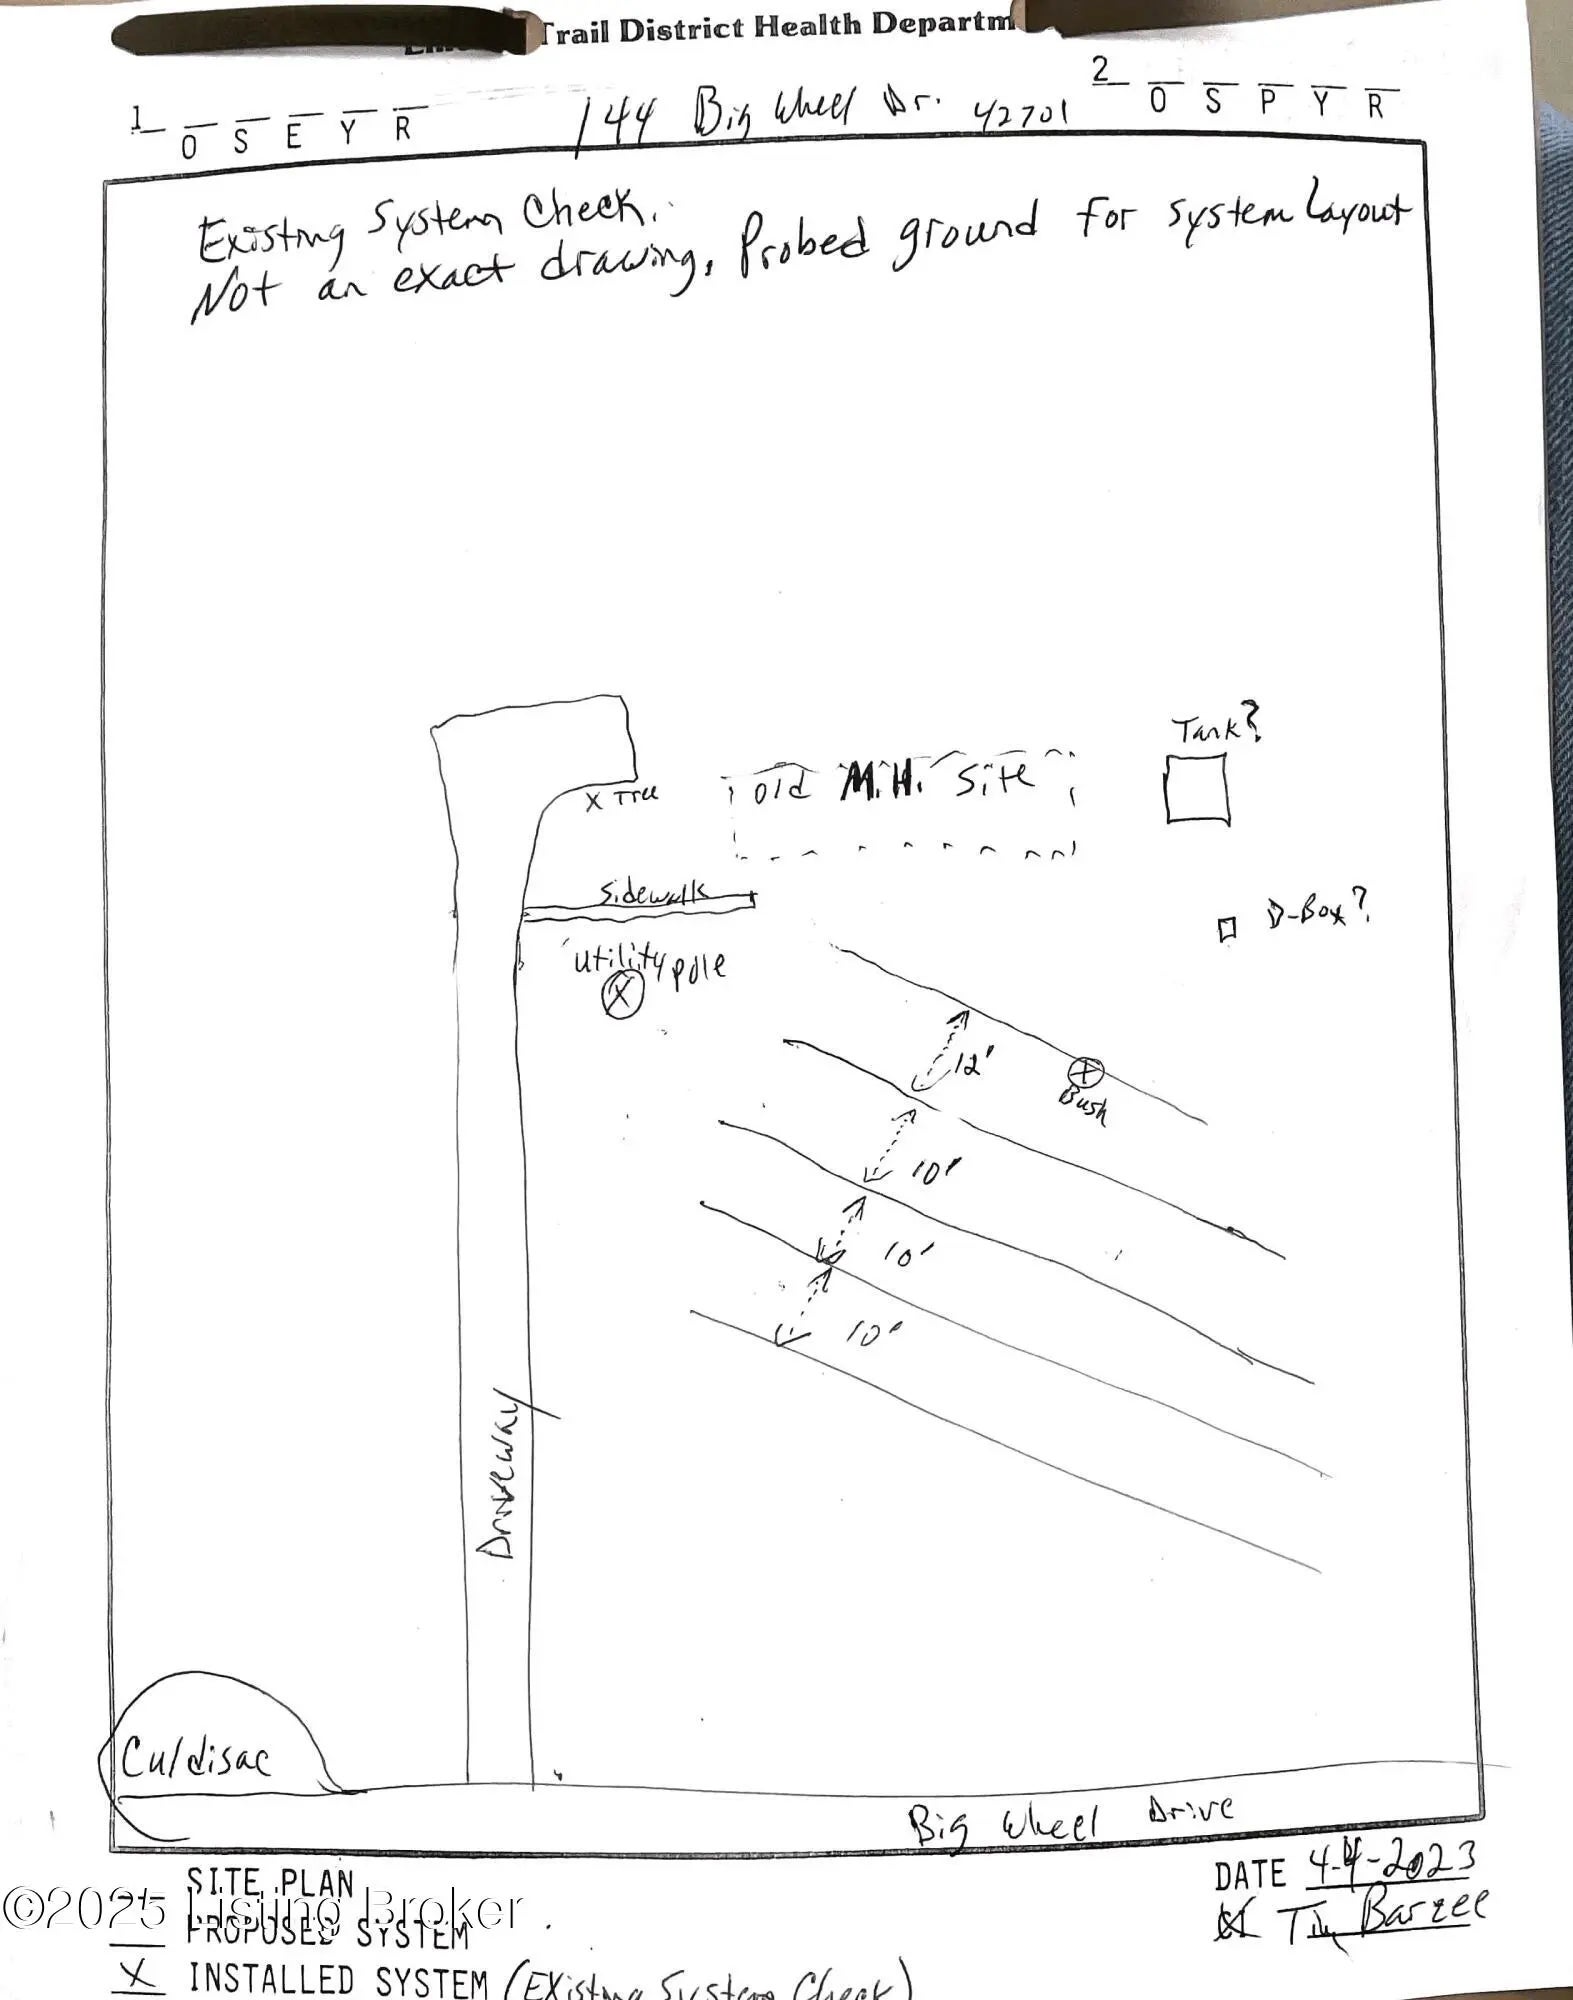 Trail District Health Departm
1 O S E Y R
144 Big Wheel Dr. 42701
2 O S P Y R
Existing System Check.
Not an exact drawing, Probed ground for system Layout
Tank?
X Tree
old M.H. Site
Sidewalk
D-Box?
utility pole
X
12'
Bush
10'
10'
10'
Driveway
Culdisac
Big Wheel Drive
SITE PLAN
DATE 4-4-2023
©2025 Listing Broker
PROPOSED SYSTEM
Barzee
X INSTALLED SYSTEM (Existing System Check)